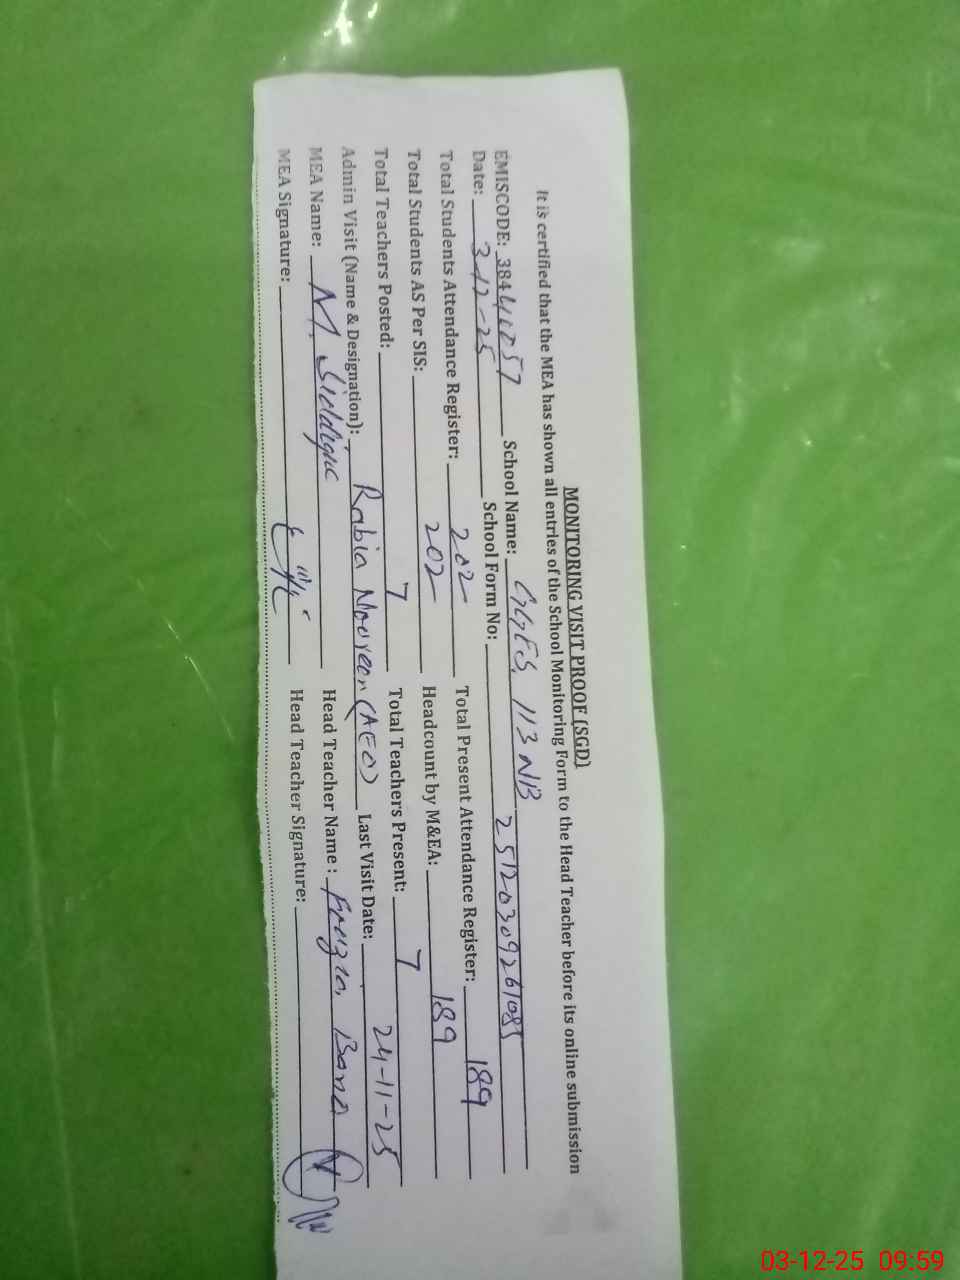 MONITORING VISIT PROOF (SGD)
It is certified that the MEA has shown all entries of the School Monitoring Form to the Head Teacher before its online submission
EMISCODE: 38440057 School Name: GGES, 113 NB
Date: 3-12-25 School Form No: 25120309261085
Total Students Attendance Register: 202 Total Present Attendance Register: 189
Total Students AS Per SIS: 202 Headcount by M&EA: 189
Total Teachers Posted: 7 Total Teachers Present: 7
Admin Visit (Name & Designation): Rabia Noureen (AEO) Last Visit Date: 24-11-25
MEA Name: M. Siddique Head Teacher Name : Fouzia Bano
MEA Signature: Head Teacher Signature:
03-12-25 09:59